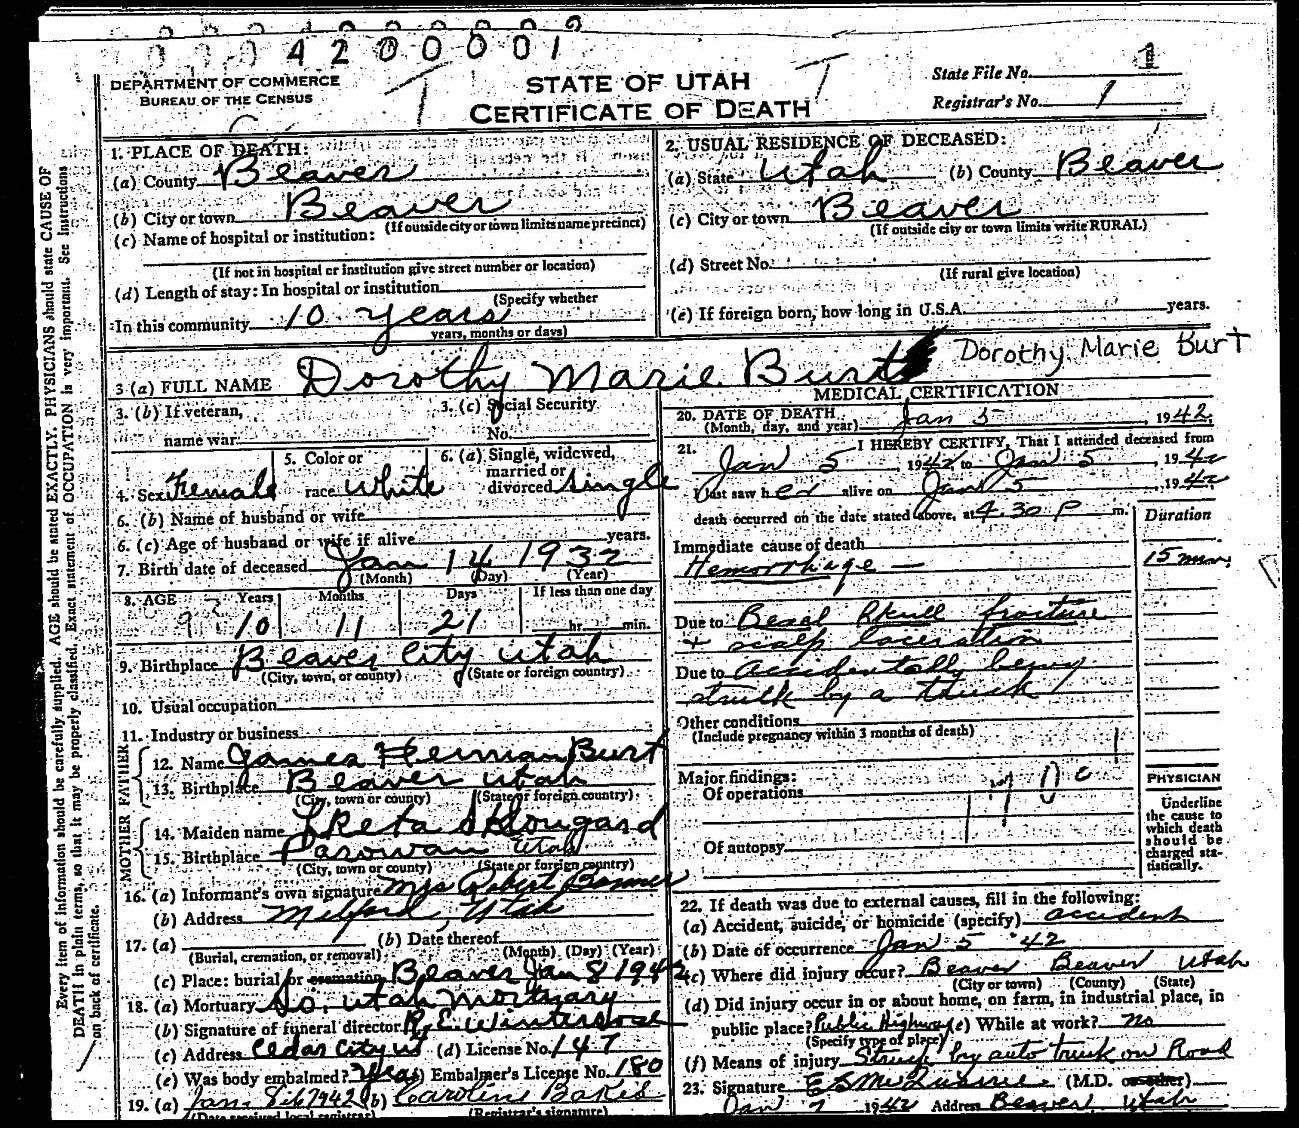 0004200001
DEPARTMENT OF COMMERCE
BUREAU OF THE CENSUS
STATE OF UTAH
CERTIFICATE OF DEATH
State File No. 1
Registrar's No. 1
Every item of information should be carefully supplied. AGE should be stated EXACTLY. PHYSICIANS should state CAUSE OF
DEATH in plain terms, so that it may be properly classified. Exact statement of OCCUPATION is very important. See instructions
on back of certificate.
1. PLACE OF DEATH:
(a) County Beaver
(b) City or town Beaver
(If outside city or town limits name precinct)
(c) Name of hospital or institution:
(If not in hospital or institution give street number or location)
(d) Length of stay: In hospital or institution
(Specify whether
In this community 10 years
years, months or days)
2. USUAL RESIDENCE OF DECEASED:
(a) State Utah (b) County Beaver
(c) City or town Beaver
(If outside city or town limits write RURAL)
(d) Street No.
(If rural give location)
(e) If foreign born, how long in U.S.A. years.
3 (a) FULL NAME Dorothy Marie Burt Dorothy Marie Burt
3. (b) If veteran,
name war
3. (c) Social Security
No.
4. Sex Female
5. Color or
race White
6. (a) Single, widowed,
married or
divorced Single
6. (b) Name of husband or wife
6. (c) Age of husband or wife if alive years.
7. Birth date of deceased Jan 14 1932
(Month) (Day) (Year)
8. AGE Years Months Days If less than one day
9 10 11 21 hr. min.
9. Birthplace Beaver City Utah
(City, town, or county) (State or foreign country)
10. Usual occupation
11. Industry or business
FATHER
12. Name James Herman Burt
13. Birthplace Beaver Utah
(City, town or county) (State or foreign country)
MOTHER
14. Maiden name Skougard
15. Birthplace Parowan Utah
(City, town or county) (State or foreign country)
16. (a) Informant's own signature Mrs Robert
(b) Address Milford, Utah
17. (a) (b) Date thereof
(Burial, cremation, or removal) (Month) (Day) (Year)
(c) Place: burial or cremation Beaver Jan 8 1942
18. (a) Mortuary So. Utah Mortuary
(b) Signature of funeral director
(c) Address Cedar City Ut (d) License No. 147
(e) Was body embalmed? Yes (f) Embalmer's License No. 180
19. (a) Jan. 1942 (b) Caroline
(Date received local registrar) (Registrar's signature)
MEDICAL CERTIFICATION
20. DATE OF DEATH Jan 5 1942
(Month, day, and year)
21. I HEREBY CERTIFY, That I attended deceased from
Jan 5, 1942 to Jan 5, 1942
I last saw her alive on Jan 5, 1942
death occurred on the date stated above, at 4.30 P m.
Duration
Immediate cause of death
Hemorrhage — 15 min.
Due to Basal Skull fracture
+ scalp laceration
Due to Accidentally being
struck by a truck
Other conditions
(Include pregnancy within 3 months of death)
Major findings:
Of operations
Of autopsy
PHYSICIAN
Underline
the cause to
which death
should be
charged sta-
tistically.
22. If death was due to external causes, fill in the following:
(a) Accident, suicide, or homicide (specify) accident
(b) Date of occurrence Jan 5 '42
(c) Where did injury occur? Beaver Beaver Utah
(City or town) (County) (State)
(d) Did injury occur in or about home, on farm, in industrial place, in
public place? Public Highway (e) While at work? no
(Specify type of place)
(f) Means of injury Struck by auto truck on Road
23. Signature (M.D. or other)
Jan 7 1942 Address Beaver Utah